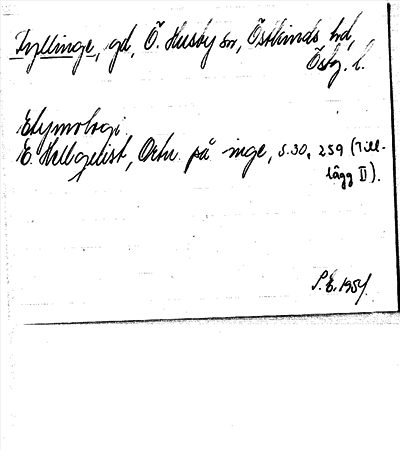 Fyllinge, gd, Ö. Husby sn, Östkinds hd,
Östg. l.
Etymologi.
E. Hellquist, Ortn. på inge, s. 30, 259 (Till-
lägg II).
S. E. 1954.